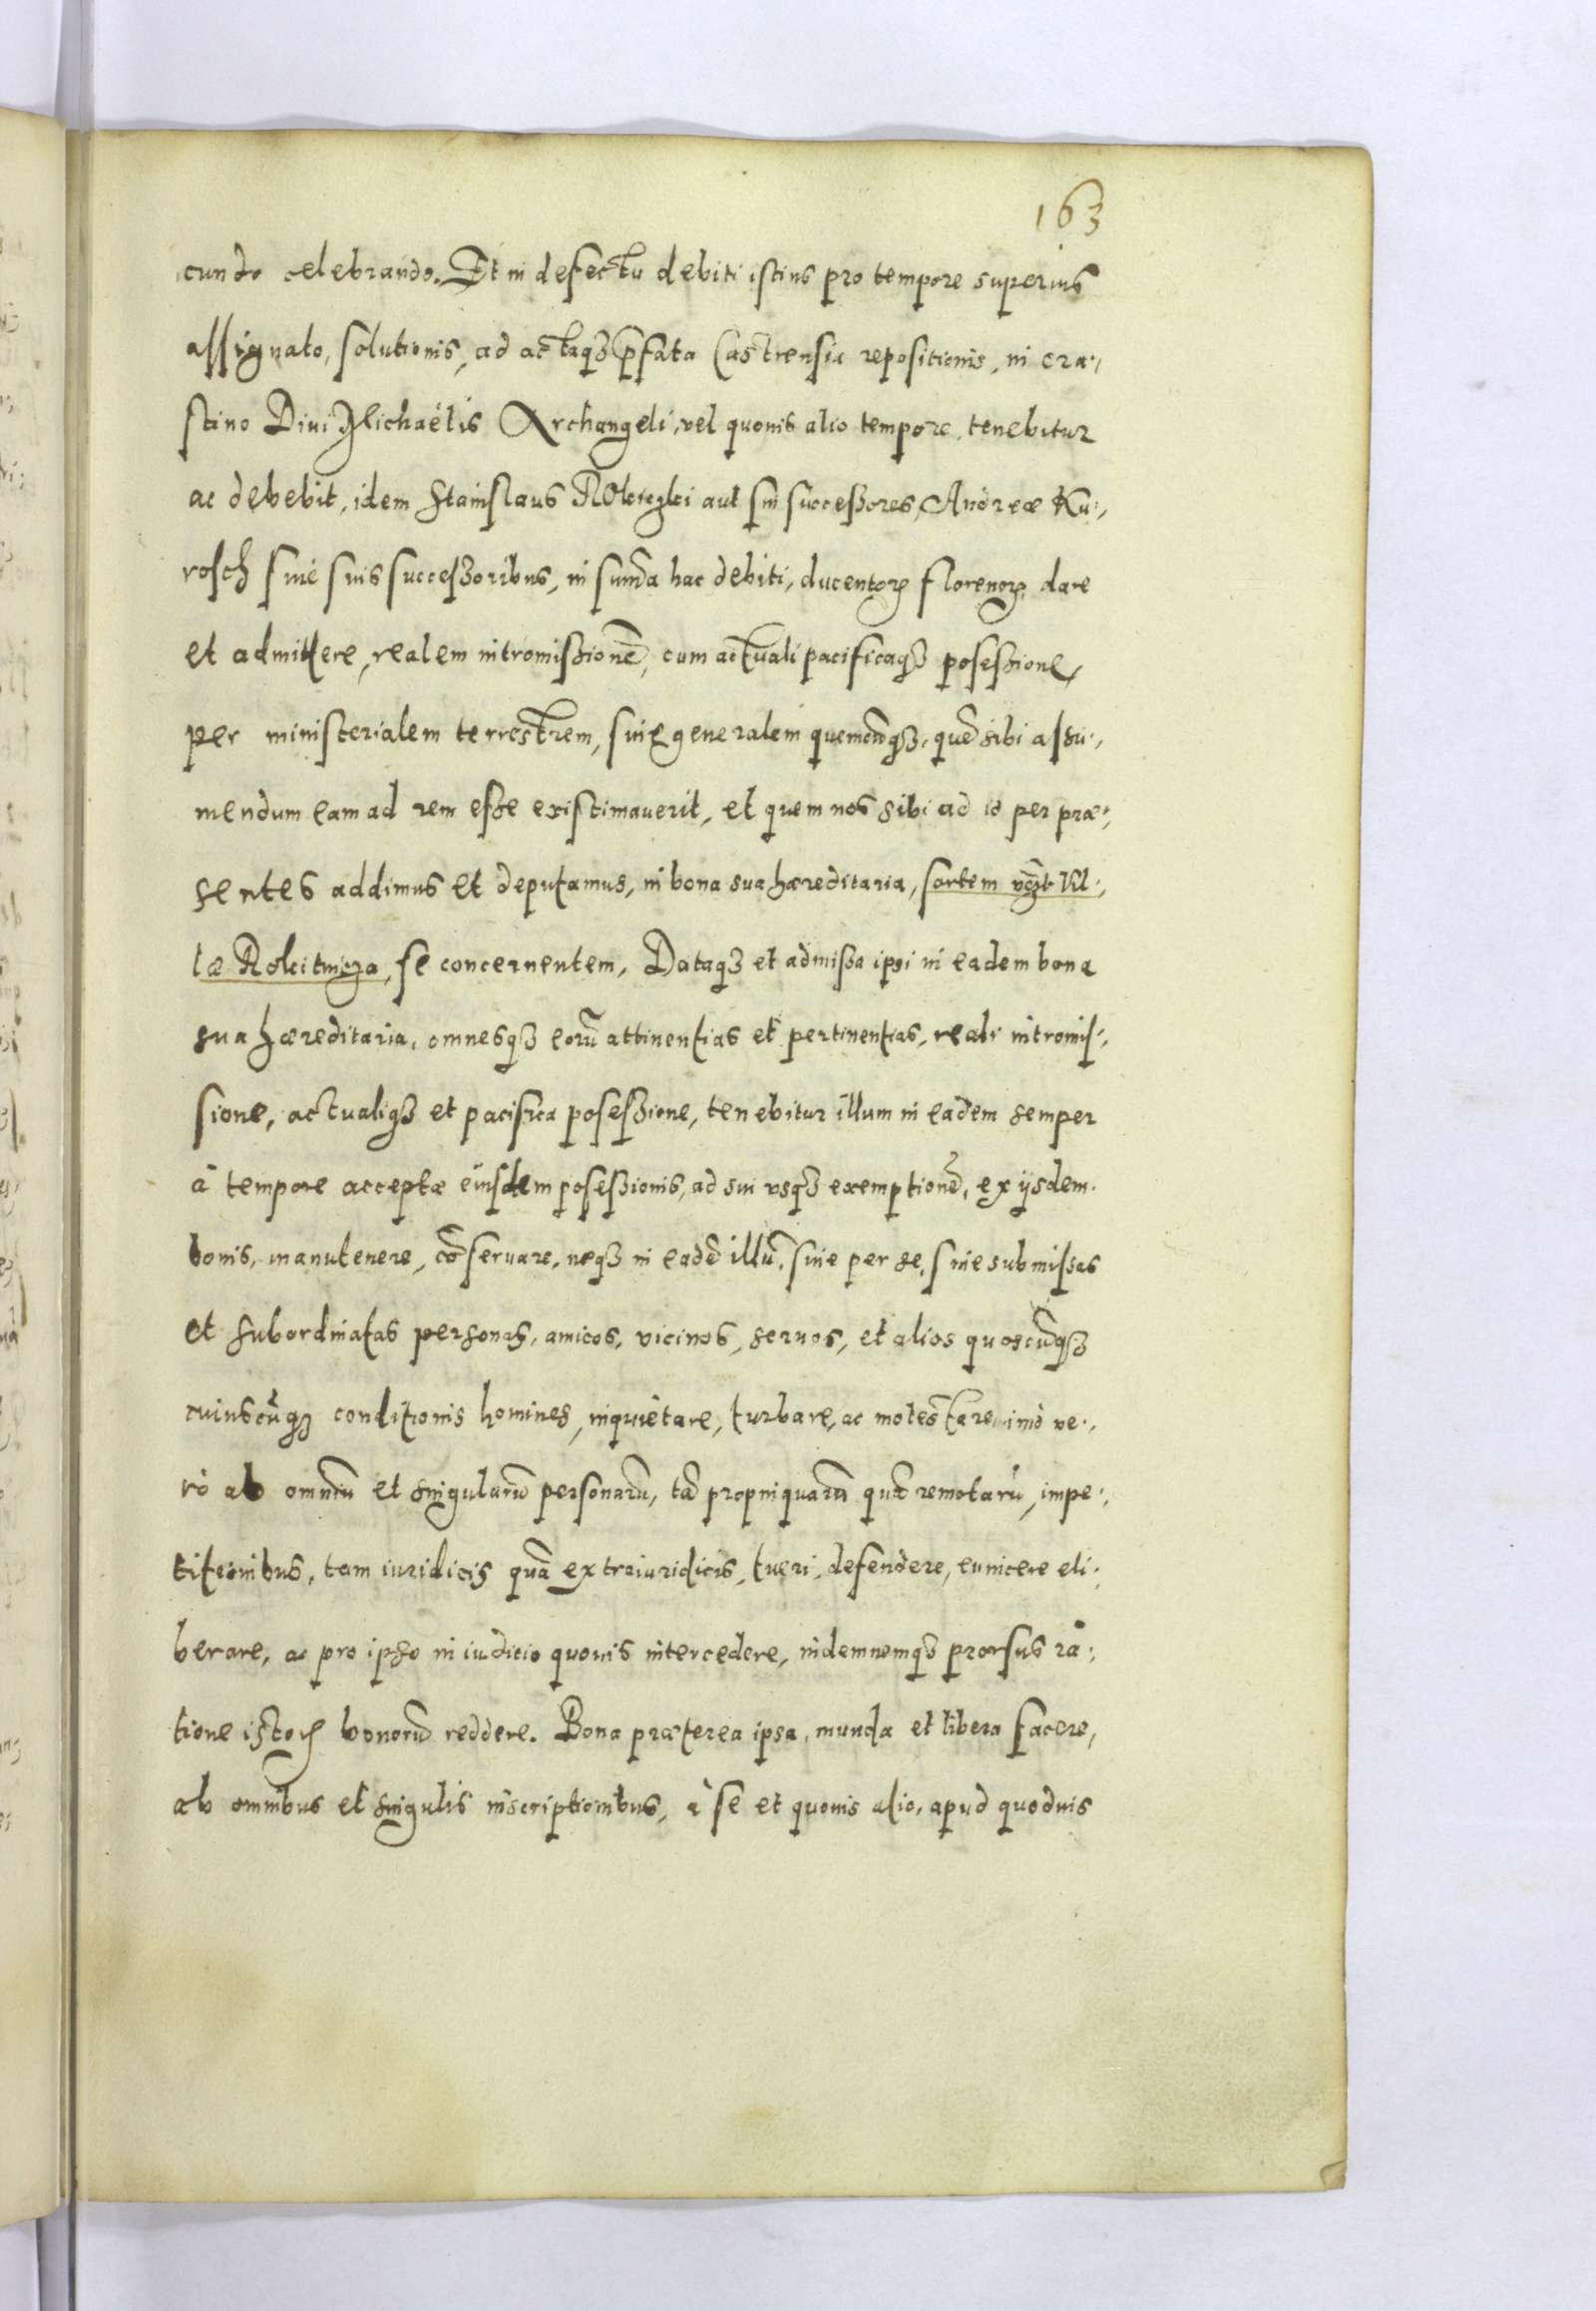 163
cundo celebrando. Et in defectu debiti istius pro tempore superius
assignato, solutionis, ad actaq₃ p̄fata Castrensia repositionis, in cra:,
stino Diui Michaëlis Archangeli, vel quouis alio tempore, tenebitur
ac debebit, idem Stanislaus aut sui successores, Andreæ Ku:,
rosch siue suis successoribus, in sum̄a hac debiti, ducentoꝝ florenoꝝ, dare
et admittere, realem intromissionē, cum actuali pacificaq₃ posessione,
per ministerialem terrestrem, siue generalem quemcūq₃, quē sibi assu:,
mendum eam ad rem esse existimauerit, et quem nos sibi ad id per præ:,
sentes addimus et deputamus, in bona sua hæreditaria, sortem Vil:,
læ Rokitnicza, se concernentem, Dataq₃ et admissa ipsi in eadem bona
sua hæreditaria, omnesq₃ eorū attinentias et pertinentias, reali intromis:,
sione, actualiq₃ et pacifica posessione, tenebitur illum in eadem semper
à tempore acceptæ eiusdem posessionis, ad sui vsq₃ exemptionē, ex ijsdem
bonis, manutenere, cōseruare, neq₃ in eadē illū, siue per se, siue submissas
et subordinatas personas, amicos, vicinos, seruos, et alios quoscūq₃
cuiuscūq₃ conditionis homines, inquietare, turbare, ac molestare, imò ve:,
rò ab omniū et singularū personarū, tā propinquarū quā remotarū, impe:,
titionibus, tam iuridicis quā extraiuridicis, tueri, defendere, euincere eli:,
berare, ac pro ipso in iudicio quouis intercedere, indemnemq₃ prorsus ra:,
tione istoꝝ bonorū reddere. Bona præterea ipsa, munda et libera facere,
ab omnibus et singulis inscriptionibus, à se et quouis alio, apud quoduis